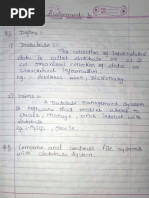 Assignment 1
Q.1 Define :
1) Database :-
The collection of Interrelated
data is called database or it is
an organised collection of data or
structured Information.
eg. Address book, Dictionary
2) DBMS :-
A Database Management System
is software that enables users to
create, manage and interact with
database
eg :- MySQL, Oracle
Q.2 Compare and contrast file systems
with database system.